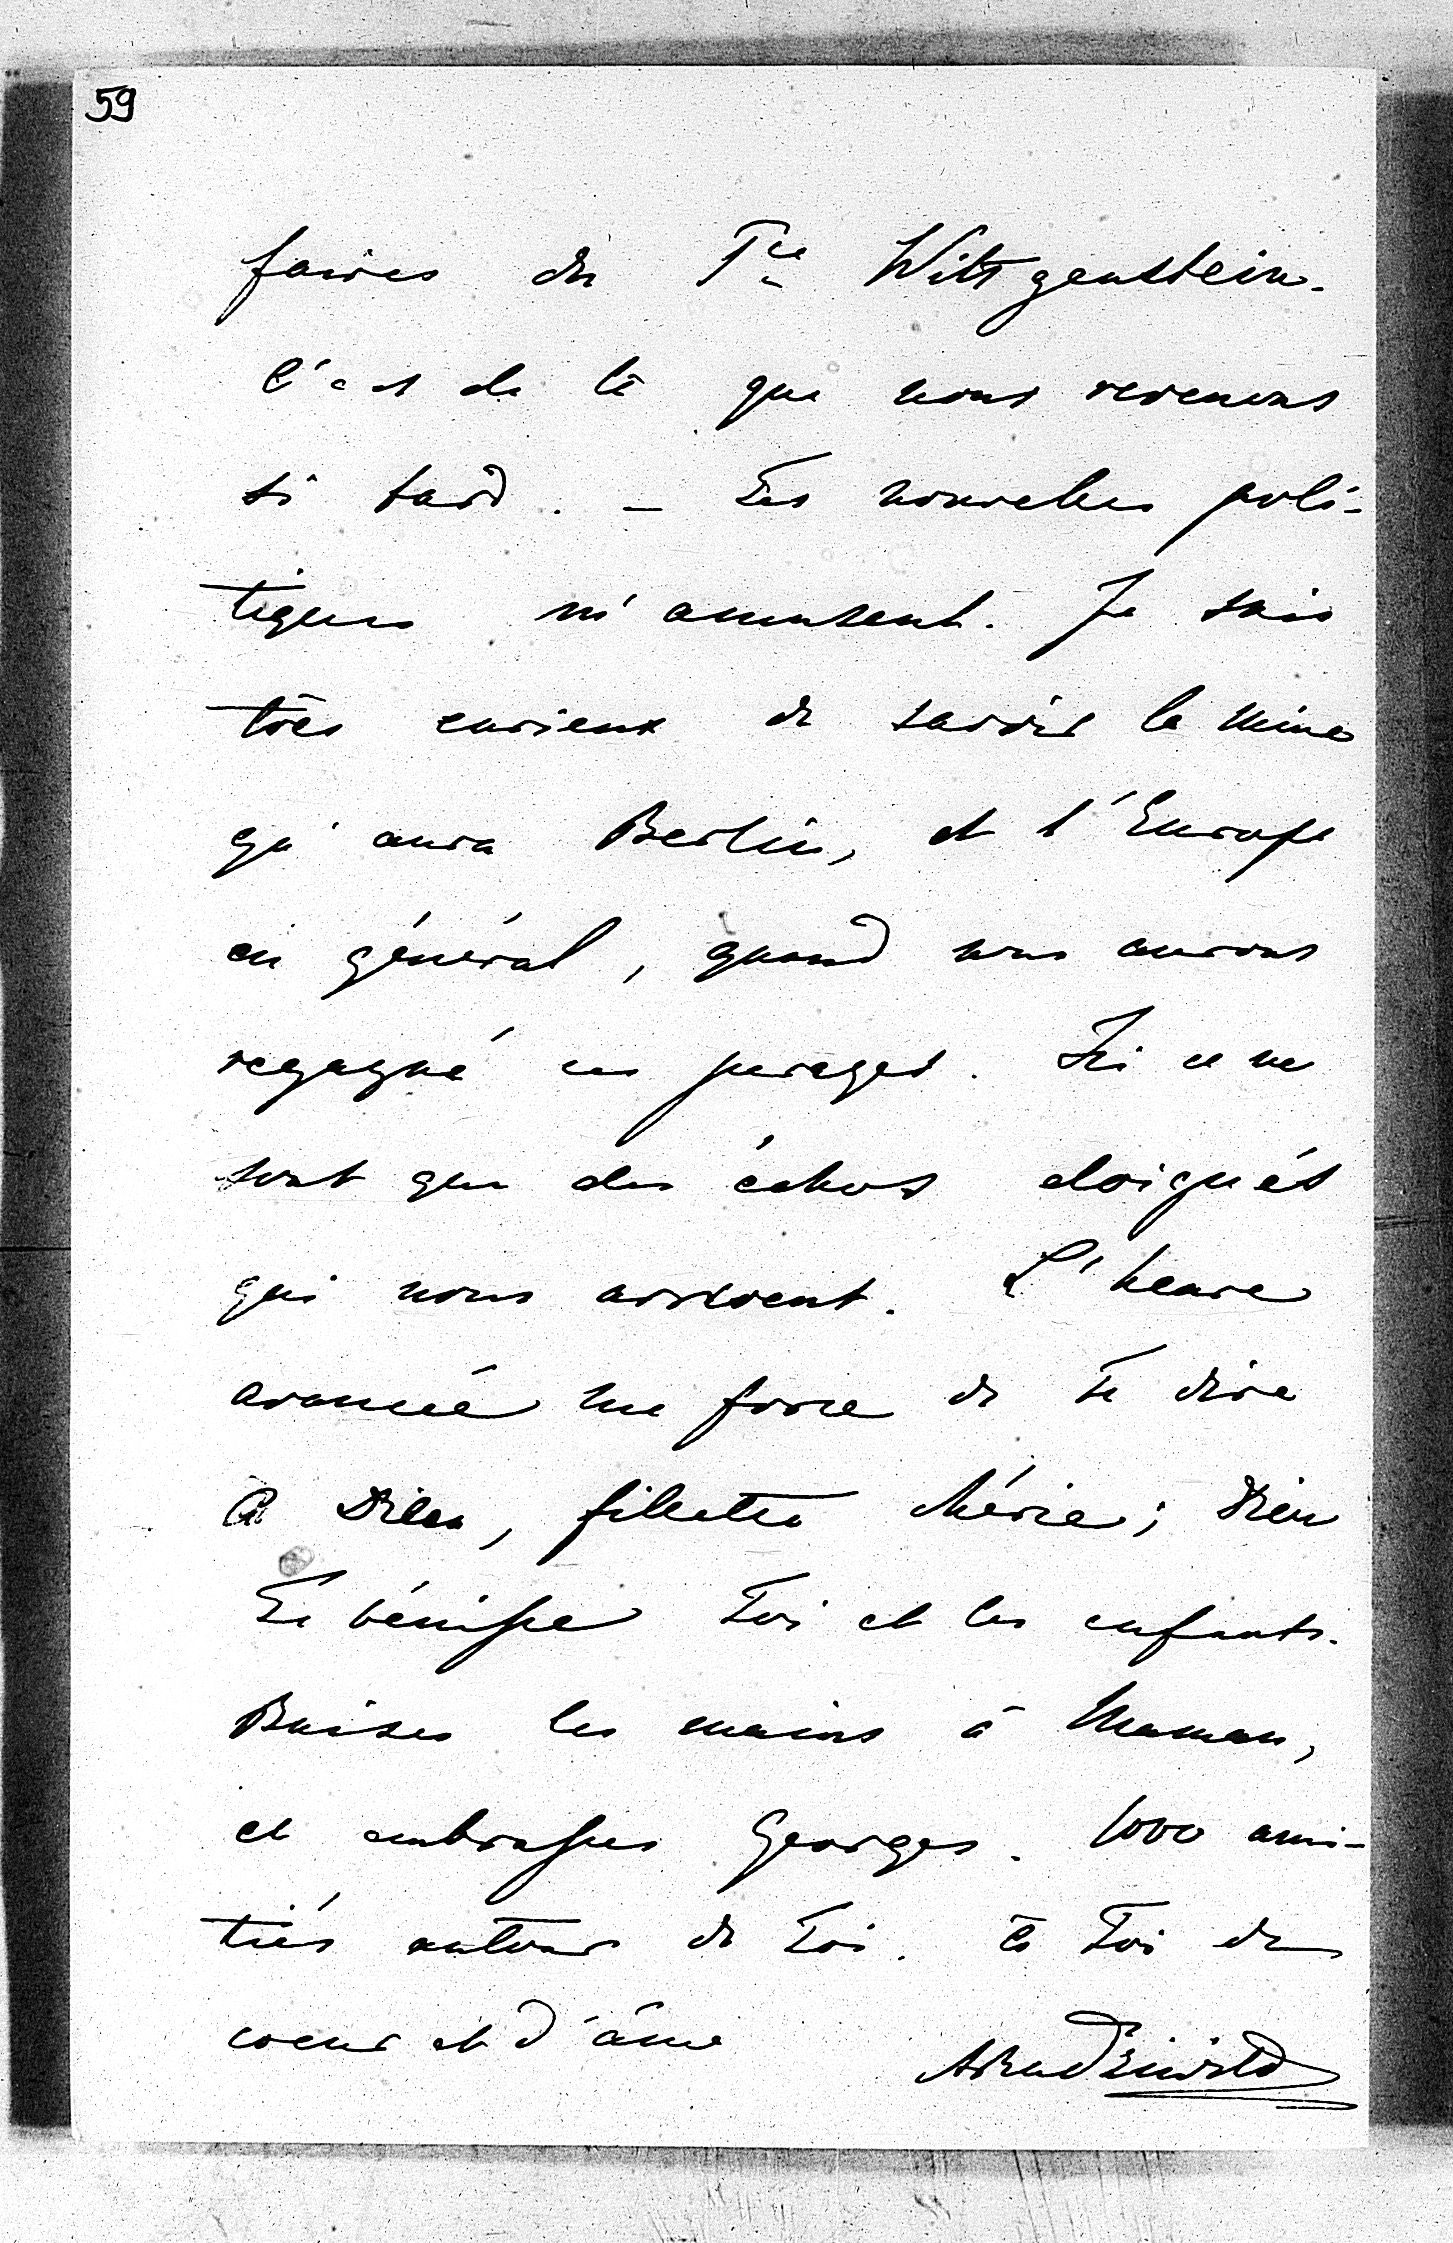 59
faires du Pce Wittgenstein.
C'est de là que nous revenons
si tard. – Les nouvelles poli-
tiques m'amusent. Je suis
très curieux de savoir la mine
qu'aura Berlin, et l'Europe
en général, quand nous aurons
regagné ces parages. Ici ce ne
sont que des échos eloignés
qui nous arrivent. L'heure
avancée me force de te dire
à Dieu, fillette chérie; Dieu
Te bénisse Toi et les enfants.
Baises les mains à Maman,
et embrasses Georges. 1000 ami-
tiés autour de Toi. à Toi de
coeur et d'âme